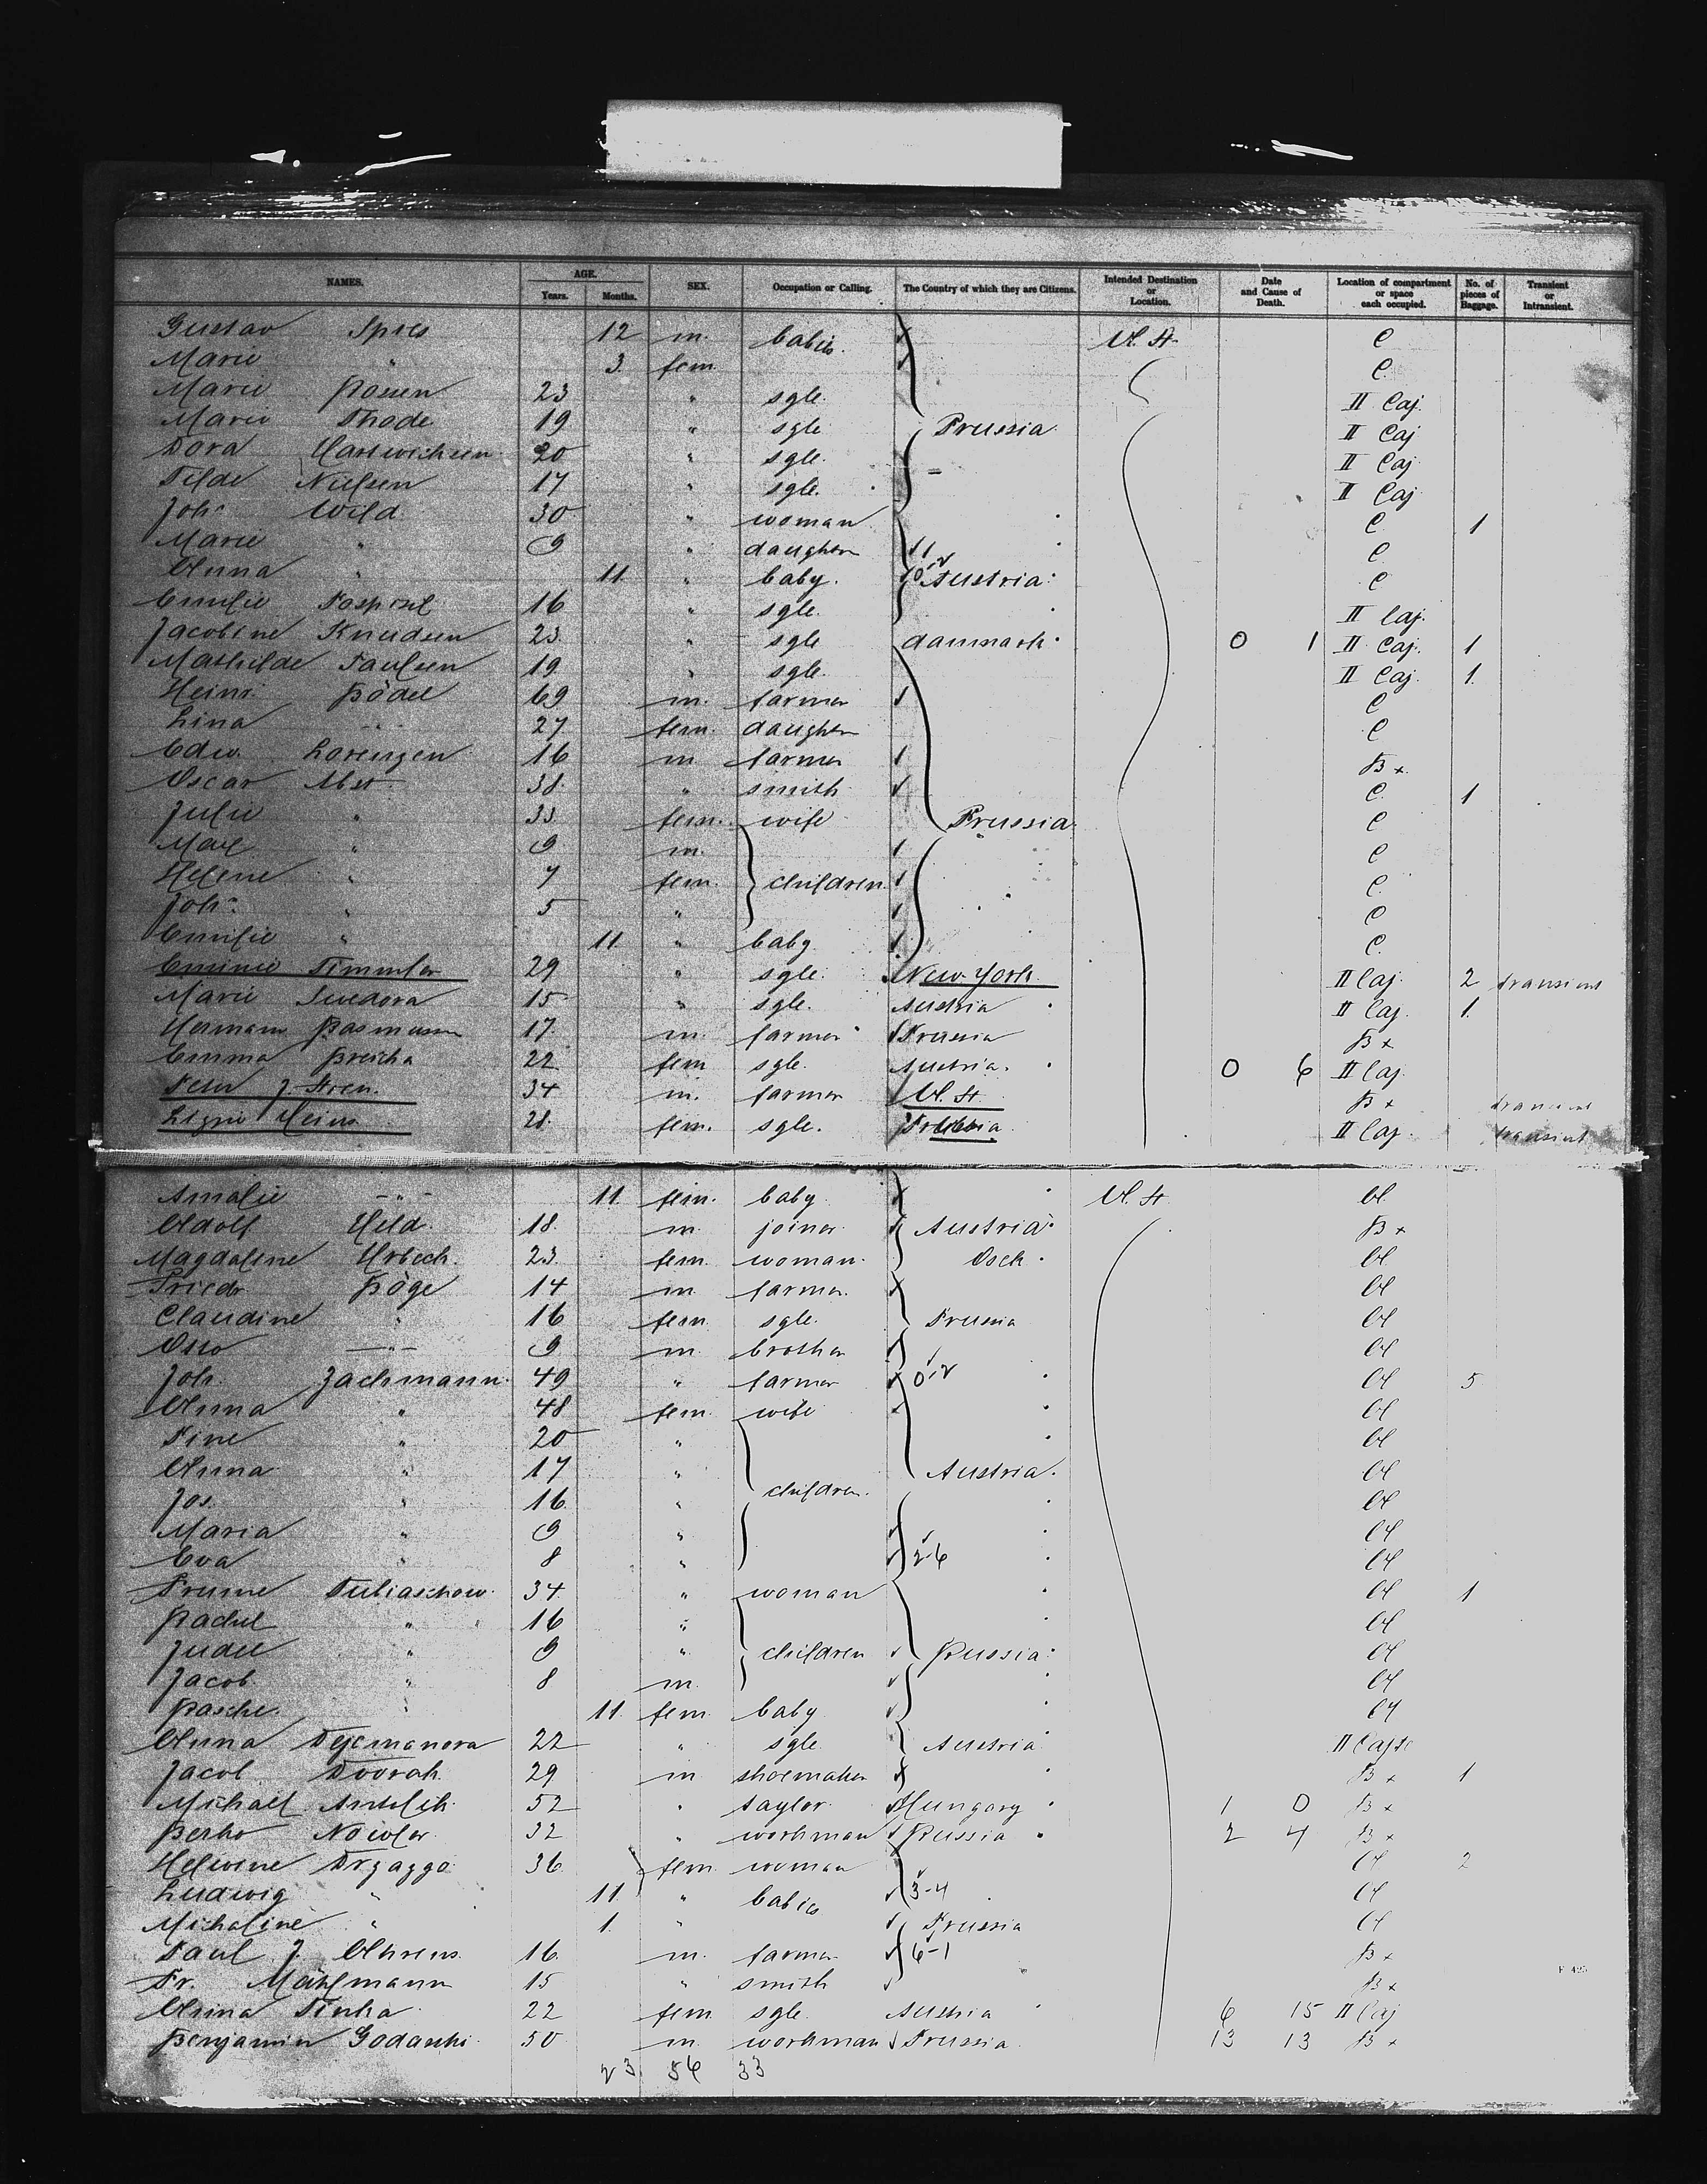 NAMES. AGE. Years. Months. SEX. Occupation or Calling. The Country of which they are Citizens. Intended Destination or Location. Date and Cause of Death. Location of compartment or space each occupied. No. of pieces of Baggage. Transient or Intransient.
Gustav Spies 12 m. babies U. St. C
Marie " 3 fem. C.
Marie 23 " sgle. II Caj.
Marie Thode 19 " sgle Prussia II Caj
Dora 20 " sgle. II Caj
Tilde Nielsen 17 " sgle. II Caj
Joh. Wild 30 " woman C 1
Marie " 9 " daughter C
Anna " 11 " baby. Austria C
Emilie Pospisil 16 " sgle. II Caj.
Jacobine Knudsen 23 " sgle danmark 0 1 II Caj. 1
Mathilde Paulsen 19 " sgle. II Caj. 1.
Heinr. 69 m. farmer C
Lina " 27 fem. daughter C
Edw. Lorenzen 16 m farmer B x
Oscar Abst 38 " smith C. 1
Julie " 33 fem. wife Prussia C
" 9 m. C
Helene " 7 fem. children C.
Joh. " 5 " C
Emilie " 11 " baby C.
Timmler 29 " sgle. New York II Caj. 2 transient
Marie 15 " sgle. Austria II Caj. 1.
Hermann Rasmussen 17 m. farmer Prussia B x
Emma 22 fem sgle. Austria. 0 6 II Caj.
Peter J. 34 m. farmer U. St B x transient
Heins 21. fem. sgle. II Caj. transient
Amalie " 11. fem. baby U. St. A
Adolf Held 18 m. joiner Austria B x
Magdalene 23. fem. woman A
Friedr. Röge 14 m. farmer A
Claudine " 16 fem. sgle. Prussia A
Otto " 9 m. brother A
Joh. Zachmann 49 " farmer 0-2 A 5
Anna " 48 fem. wife A
Tine " 20 " A
Anna " 17 " Austria. A
Jos. " 16 " children. A
Maria " 9 " A
Eva " 8 " 2-6 A
34 " woman A 1
Rachel " 16 " A
" 9 " children Russia A
Jacob " 8 m. A
Rasche " 11. fem baby A
Anna 22 " sgle Austria II Caj
Jacob Dvorak 29 m shoemaker B x 1
Michael 52 " taylor Hungary 1 0 B x
32 " workman Russia 2 4 B x
36 fem. woman A 2
Ludwig " 11. " babies 3-4 A
Michaline " 1. " Prussia A
Paul J. Ahrens 16. m. farmer 6-1 B x
Fr. 15 " smith B x
Anna 22 fem sgle Austria 6 15 II Caj
Benjamin 50 m. workman Prussia 13 13 B x
23 56 33